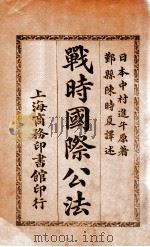 日本中村進午原著
鄞縣陳時夏譯述
戰時國際公法
上海商務印書館印行